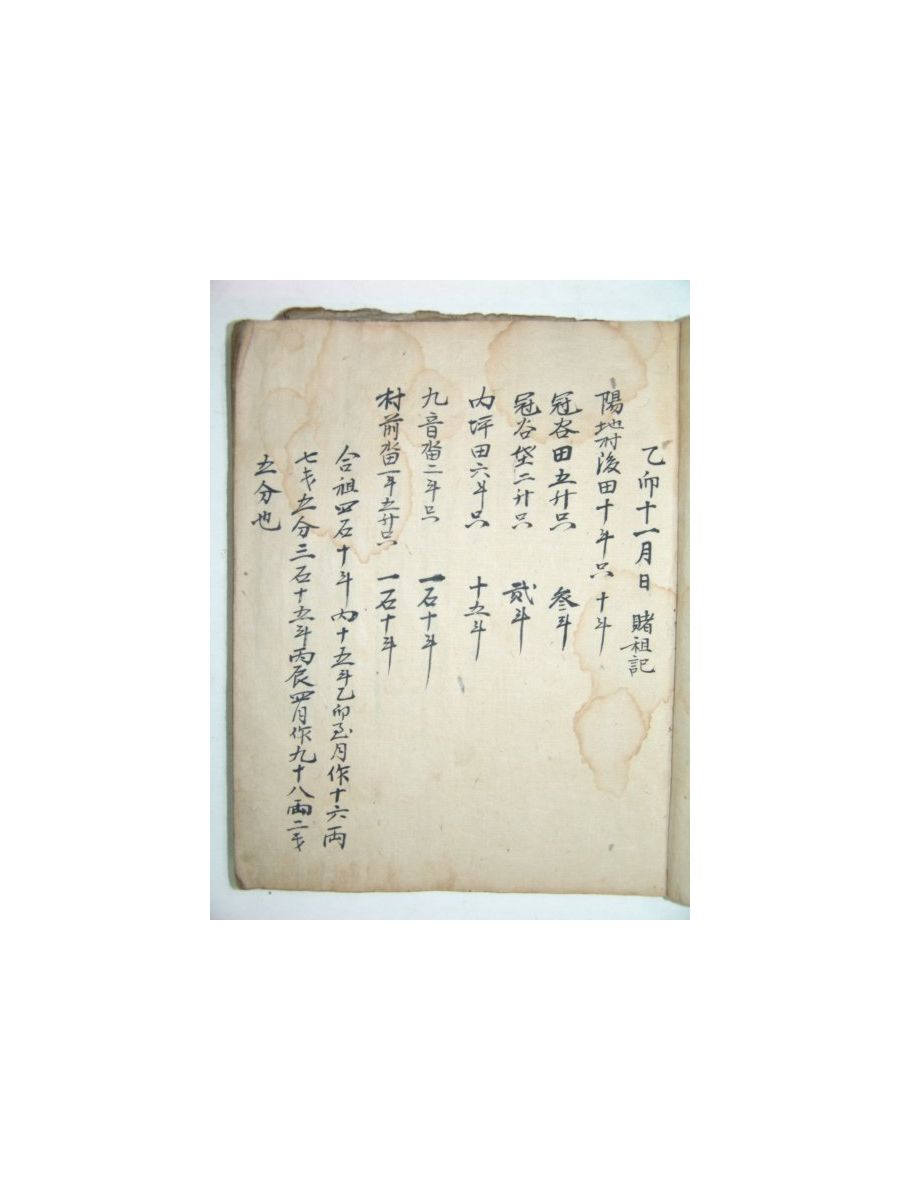 乙卯十一月日 賭祖記
陽地村後田十斗只 十斗
冠谷田五升只 叄斗
冠谷垈二升只 貳斗
內坪田六斗只 十五斗
九音畓二斗只 一石十斗
村前畓一斗五升只 一石十斗
合祖四石十斗內十五斗乙卯至月作十六両
七戔五分三石十五斗丙辰四月作九十八兩二戔
五分也